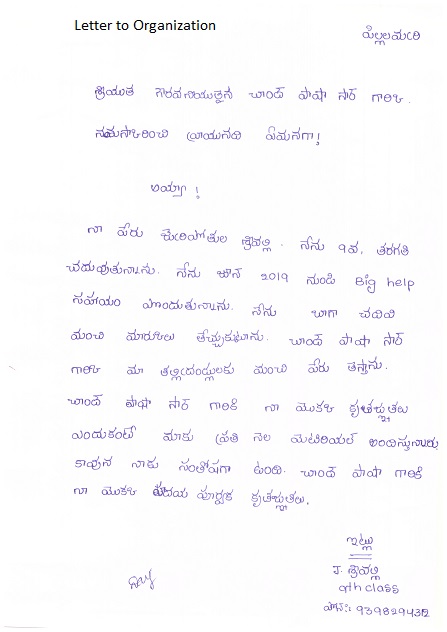 Letter to Organization
పిల్లలమర్రి
శ్రీయుత గౌరవనీయులైన చాంద్ పాషా సార్ గారికి
నమస్కరించి వ్రాయునది ఏమనగా!
అయ్యా!
నా పేరు శ్రీవల్లి. నేను 9వ, తరగతి
చదువుతున్నాను. నేను జూన్ 2019 నుండి Big help
సహాయం పొందుతున్నాను. నేను బాగా చదివి
మంచి మార్కులు తెచ్చుకుంటాను. చాంద్ పాషా సార్
గారికి మా తల్లిదండ్రులకు మంచి పేరు తెస్తాను.
చాంద్ పాషా సార్ గారికి నా యొక్క కృతజ్ఞతలు
ఎందుకంటే మాకు ప్రతి నెల మెటీరియల్ అందిస్తున్నారు
కావున నాకు సంతోషంగా ఉంది. చాంద్ పాషా గారికి
నా యొక్క హృదయ పూర్వక కృతజ్ఞతలు.
ఇట్లు
J. శ్రీవల్లి
9th class
ఫోన్: 9398294312